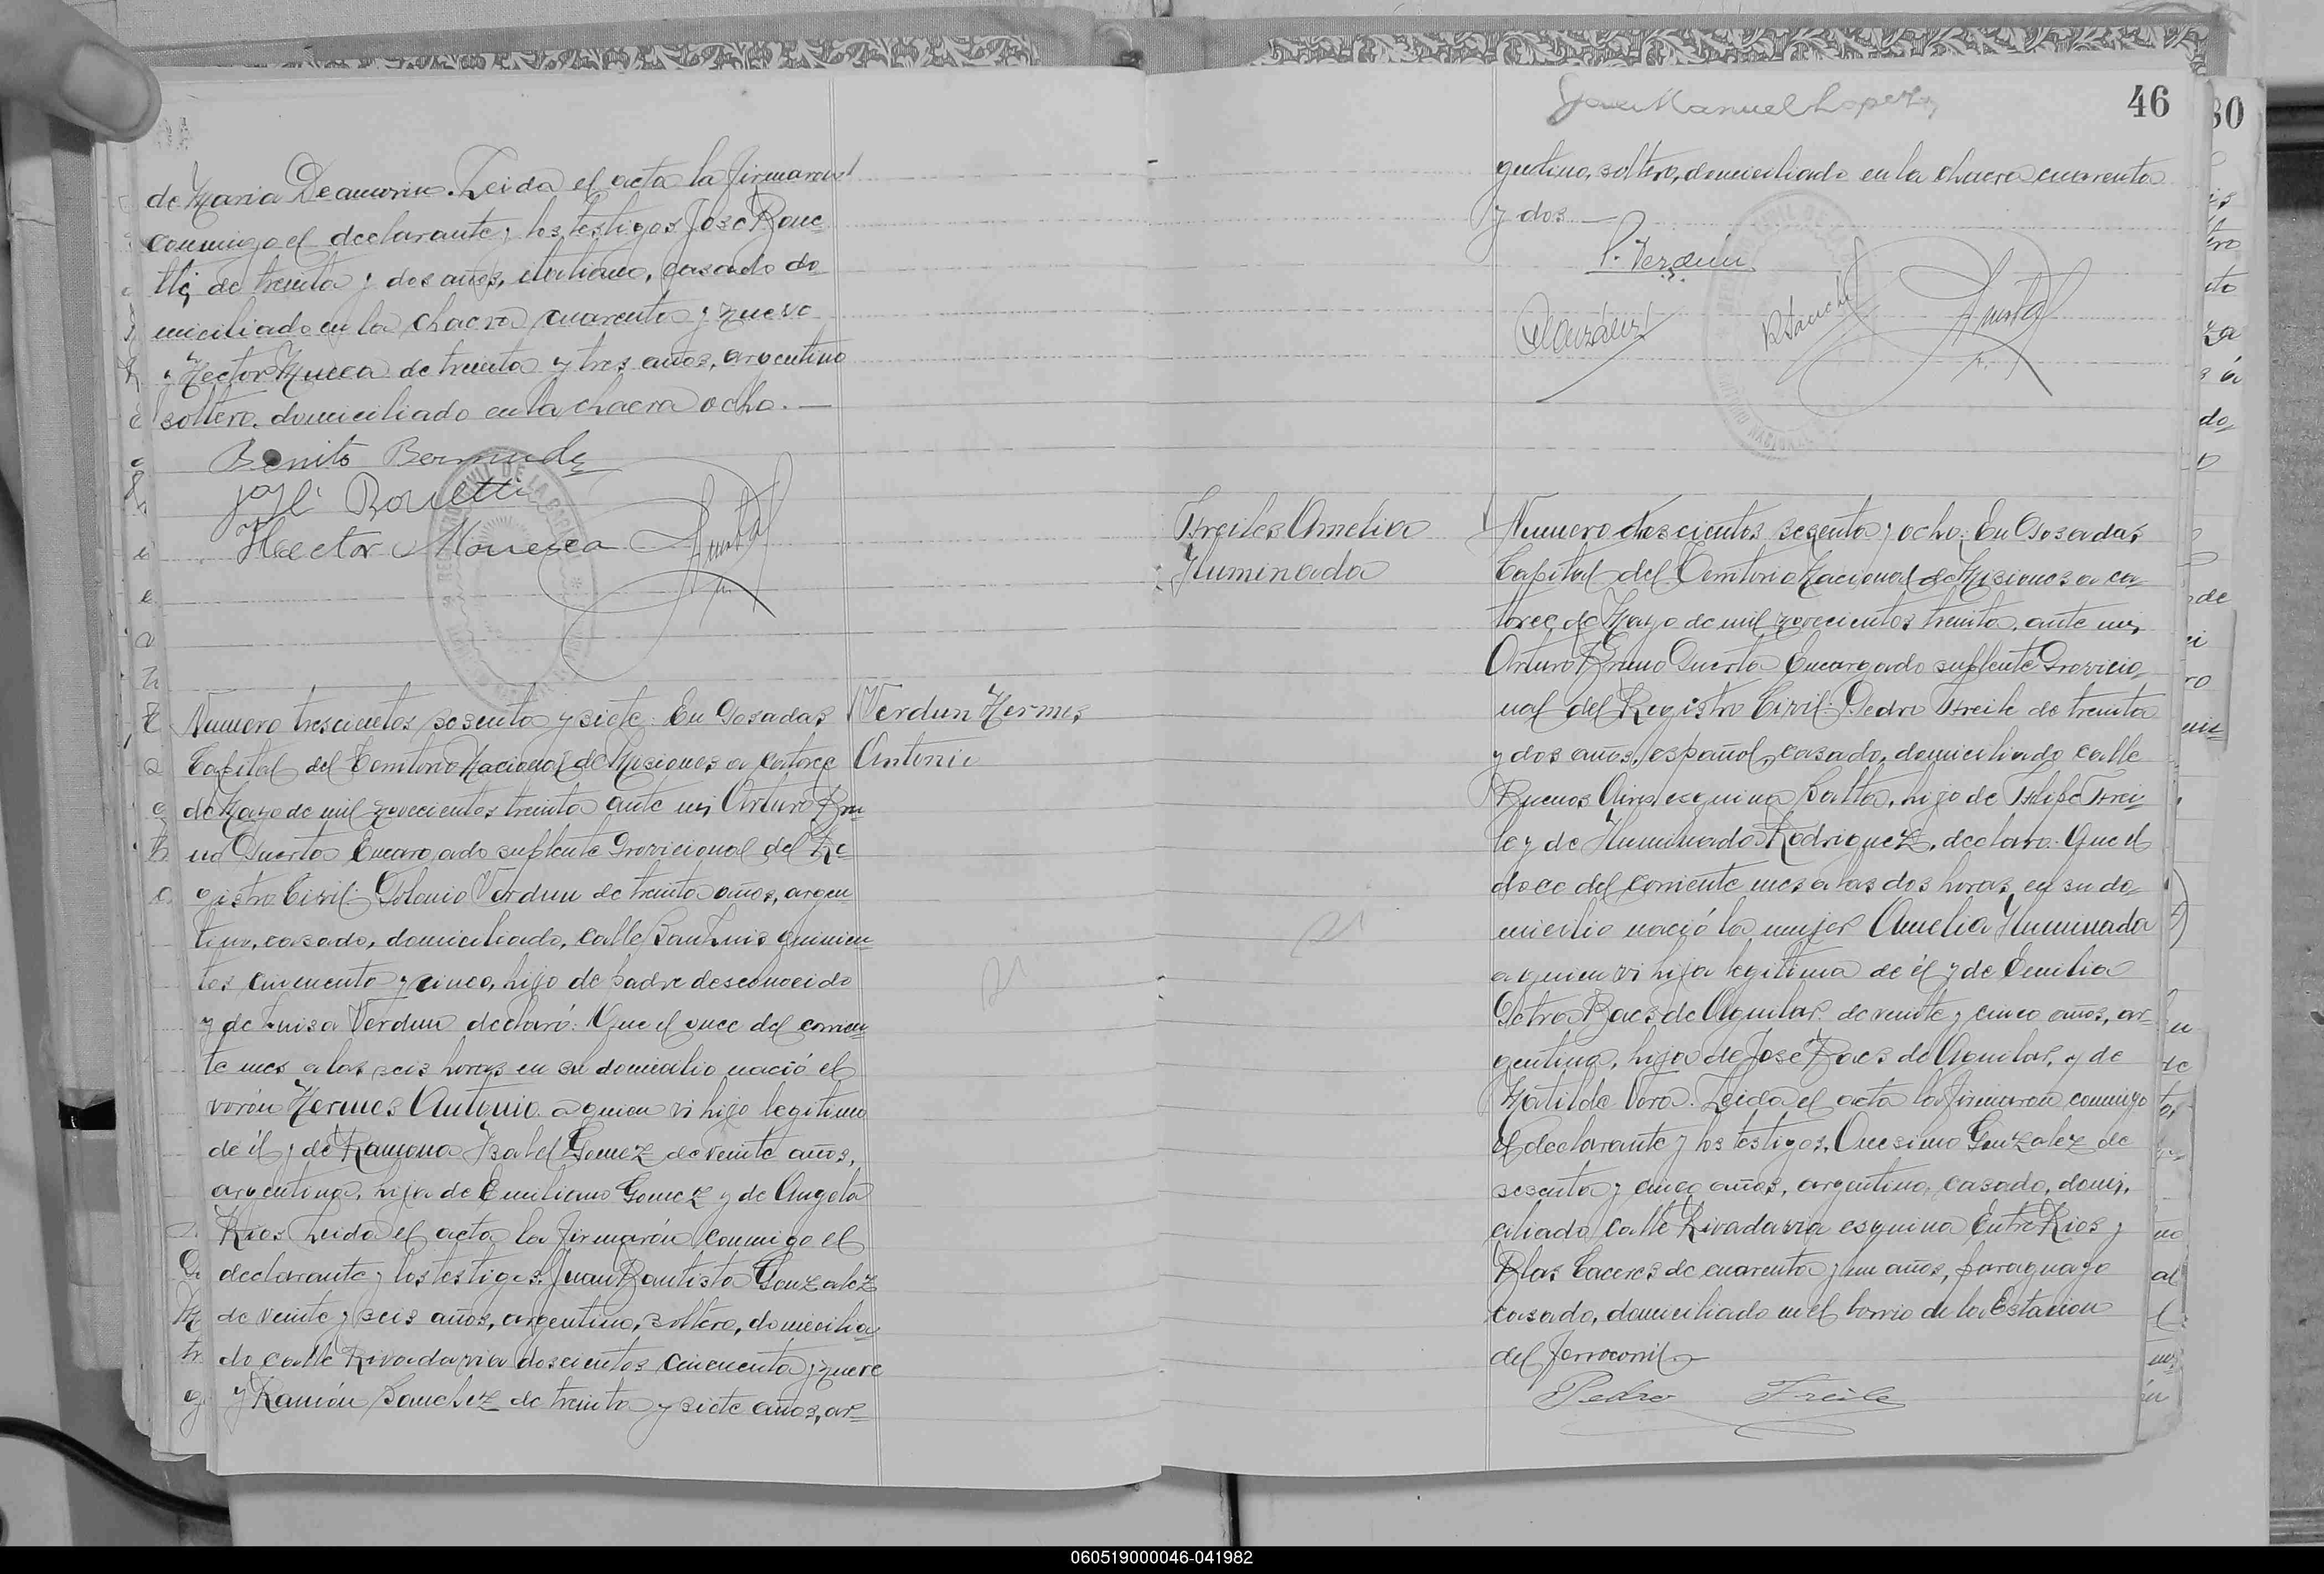 de Maria Deamorin. Leida el acta la firmaron
conmigo el declarante y los testigos Jose Rone
tti de treinta y dos años, italiano, casado do
miciliado en la chacra cuarenta y nueve
y Hector Mucca de treinta y tres años, argentino
soltero, domiciliado en la chacra ocho.—
Benito Bermudez
José Ronetti
Hector
Numero trescientos sesenta y siete. En Posadas
Capital del Territorio Nacional de Misiones a catorce
de Mayo de mil novecientos treinta ante mi Arturo Bru
no Puerta Encargado suplente Provicional del Re
gistro Civil: Polonio Verdun de treinta años, argen
tino, casado, domiciliado, calle San Luis quinien
tos cincuenta y cinco, hijo de padre desconocido
y de Luisa Verdun declaró: Que el once del corrien
te mes a las seis horas en su domicilio nació el
varón Hermes Antonio a quien vi hijo legitimo
de él y de Ramona Isabel Gomez de veinte años,
argentina, hija de Emiliano Gomez y de Angela
Rios Leida el acta la firmarón conmigo el
declarante y los testigos, Juan Bautista Gonzalez
de veinte y seis años, argentino, soltero, domicilia
do calle Rivadavia doscientos cincuenta y nueve
y Ramón Sanchez de treinta y siete años, ar=
Verdun Hermes
Antonio
46
30
Jose Manuel Lopez
gentino, soltero, domiciliado en la chacra cuarenta
y dos —
P. Verdun
R Sanchez
Freiles Amelia
Iluminada
Numero trescientos sesenta y ocho: En Posadas
Capital del Territorio Nacional de Misiones a ca
torce de Mayo de mil novecientos treinta, ante mi,
Arturo Bruno Puerta Encargado suplente Provicio
nal del Registro Civil: Pedro Freile de treinta
y dos años, español, casado, domiciliado calle
Buenos Aires esquina Salta, hijo de Felipe Frei
le y de Iluminada Rodriguez, declaro: Que el
doce del corriente mes a las dos horas, en su do
micilio nació la mujer Amelia Iluminada
a quien vi hija legitima de él y de Emilia
Petrona Baes de Aguilar de veinte y cinco años, ar=
gentina, hija de José Baes de Aguilar, y de
Matilde Vera. Leida el acta la firmaron conmigo
el declarante y los testigos, Onesimo Gonzalez de
sesenta y cinco años, argentino, casado, domi,
ciliado calle Rivadavia esquina Entre Rios y
Blas Caceres de cuarenta y un años, paraguayo
casado, domiciliado en el barrio de la Estacion
del Ferrocarril.
Pedro Freile
060519000046-041982